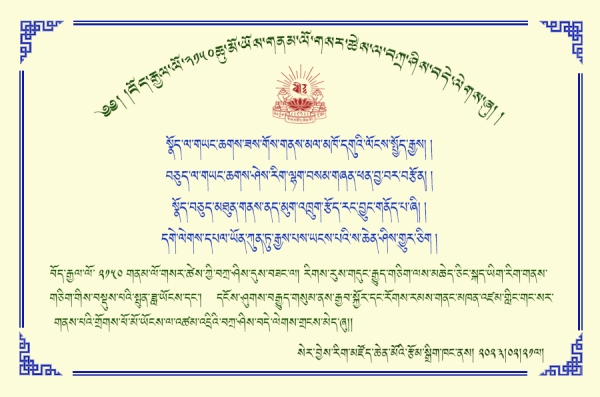 ༄༅། །བོད་རྒྱལ་ལོ་༢༡༥༠ཆུ་མོ་ཡོས་གནམ་ལོ་གསར་ཚེས་ལ་བཀྲ་ཤིས་བདེ་ལེགས་ཞུ། །
སྣོད་ལ་གཡང་ཆགས་ཟས་གོས་གནས་མལ་མཁོ་དགུའི་ལོངས་སྤྱོད་རྒྱས། །
བཅུད་ལ་གཡང་ཆགས་ཤེས་རིག་ལྷག་བསམ་གཞན་ཕན་བྱ་བར་བརྩོན། །
སྣོད་བཅུད་མཐུན་གནས་ནད་མུག་འཁྲུག་རྩོད་རང་བྱུང་གནོད་པ་ཞི། །
དགེ་ལེགས་དཔལ་ཡོན་ཀུན་ཏུ་རྒྱས་པས་ཡངས་པའི་ས་ཆེན་ཤིས་གྱུར་ཅིག །
བོད་རྒྱལ་ལོ་ ༢༡༥༠ གནམ་ལོ་གསར་ཚེས་ཀྱི་བཀྲ་ཤིས་དུས་བཟང་ལ། རིགས་རུས་གདུང་རྒྱུད་གཅིག་ལས་མཆེད་ཅིང་སྐད་ཡིག་རིག་གནས་
གཅིག་གིས་བསྡུས་པའི་སྤུན་ཟླ་ཡོངས་དང་། དངོས་ཤུགས་བརྒྱུད་གསུམ་ནས་རྒྱབ་སྐྱོར་དང་རོགས་རམས་གནང་མཁན་འཛམ་གླིང་གང་སར་
གནས་པའི་གྲོགས་པོ་མོ་ཡོངས་ལ་འཚམ་འདྲིའི་བཀྲ་ཤིས་བདེ་ལེགས་གྲངས་མེད་ཞུ།།
སེར་བྱེས་རིག་མཛོད་ཆེན་མོའི་རྩོམ་སྒྲིག་ཁང་ནས། ༢༠༢༣།༠༢།༢༡ལ།